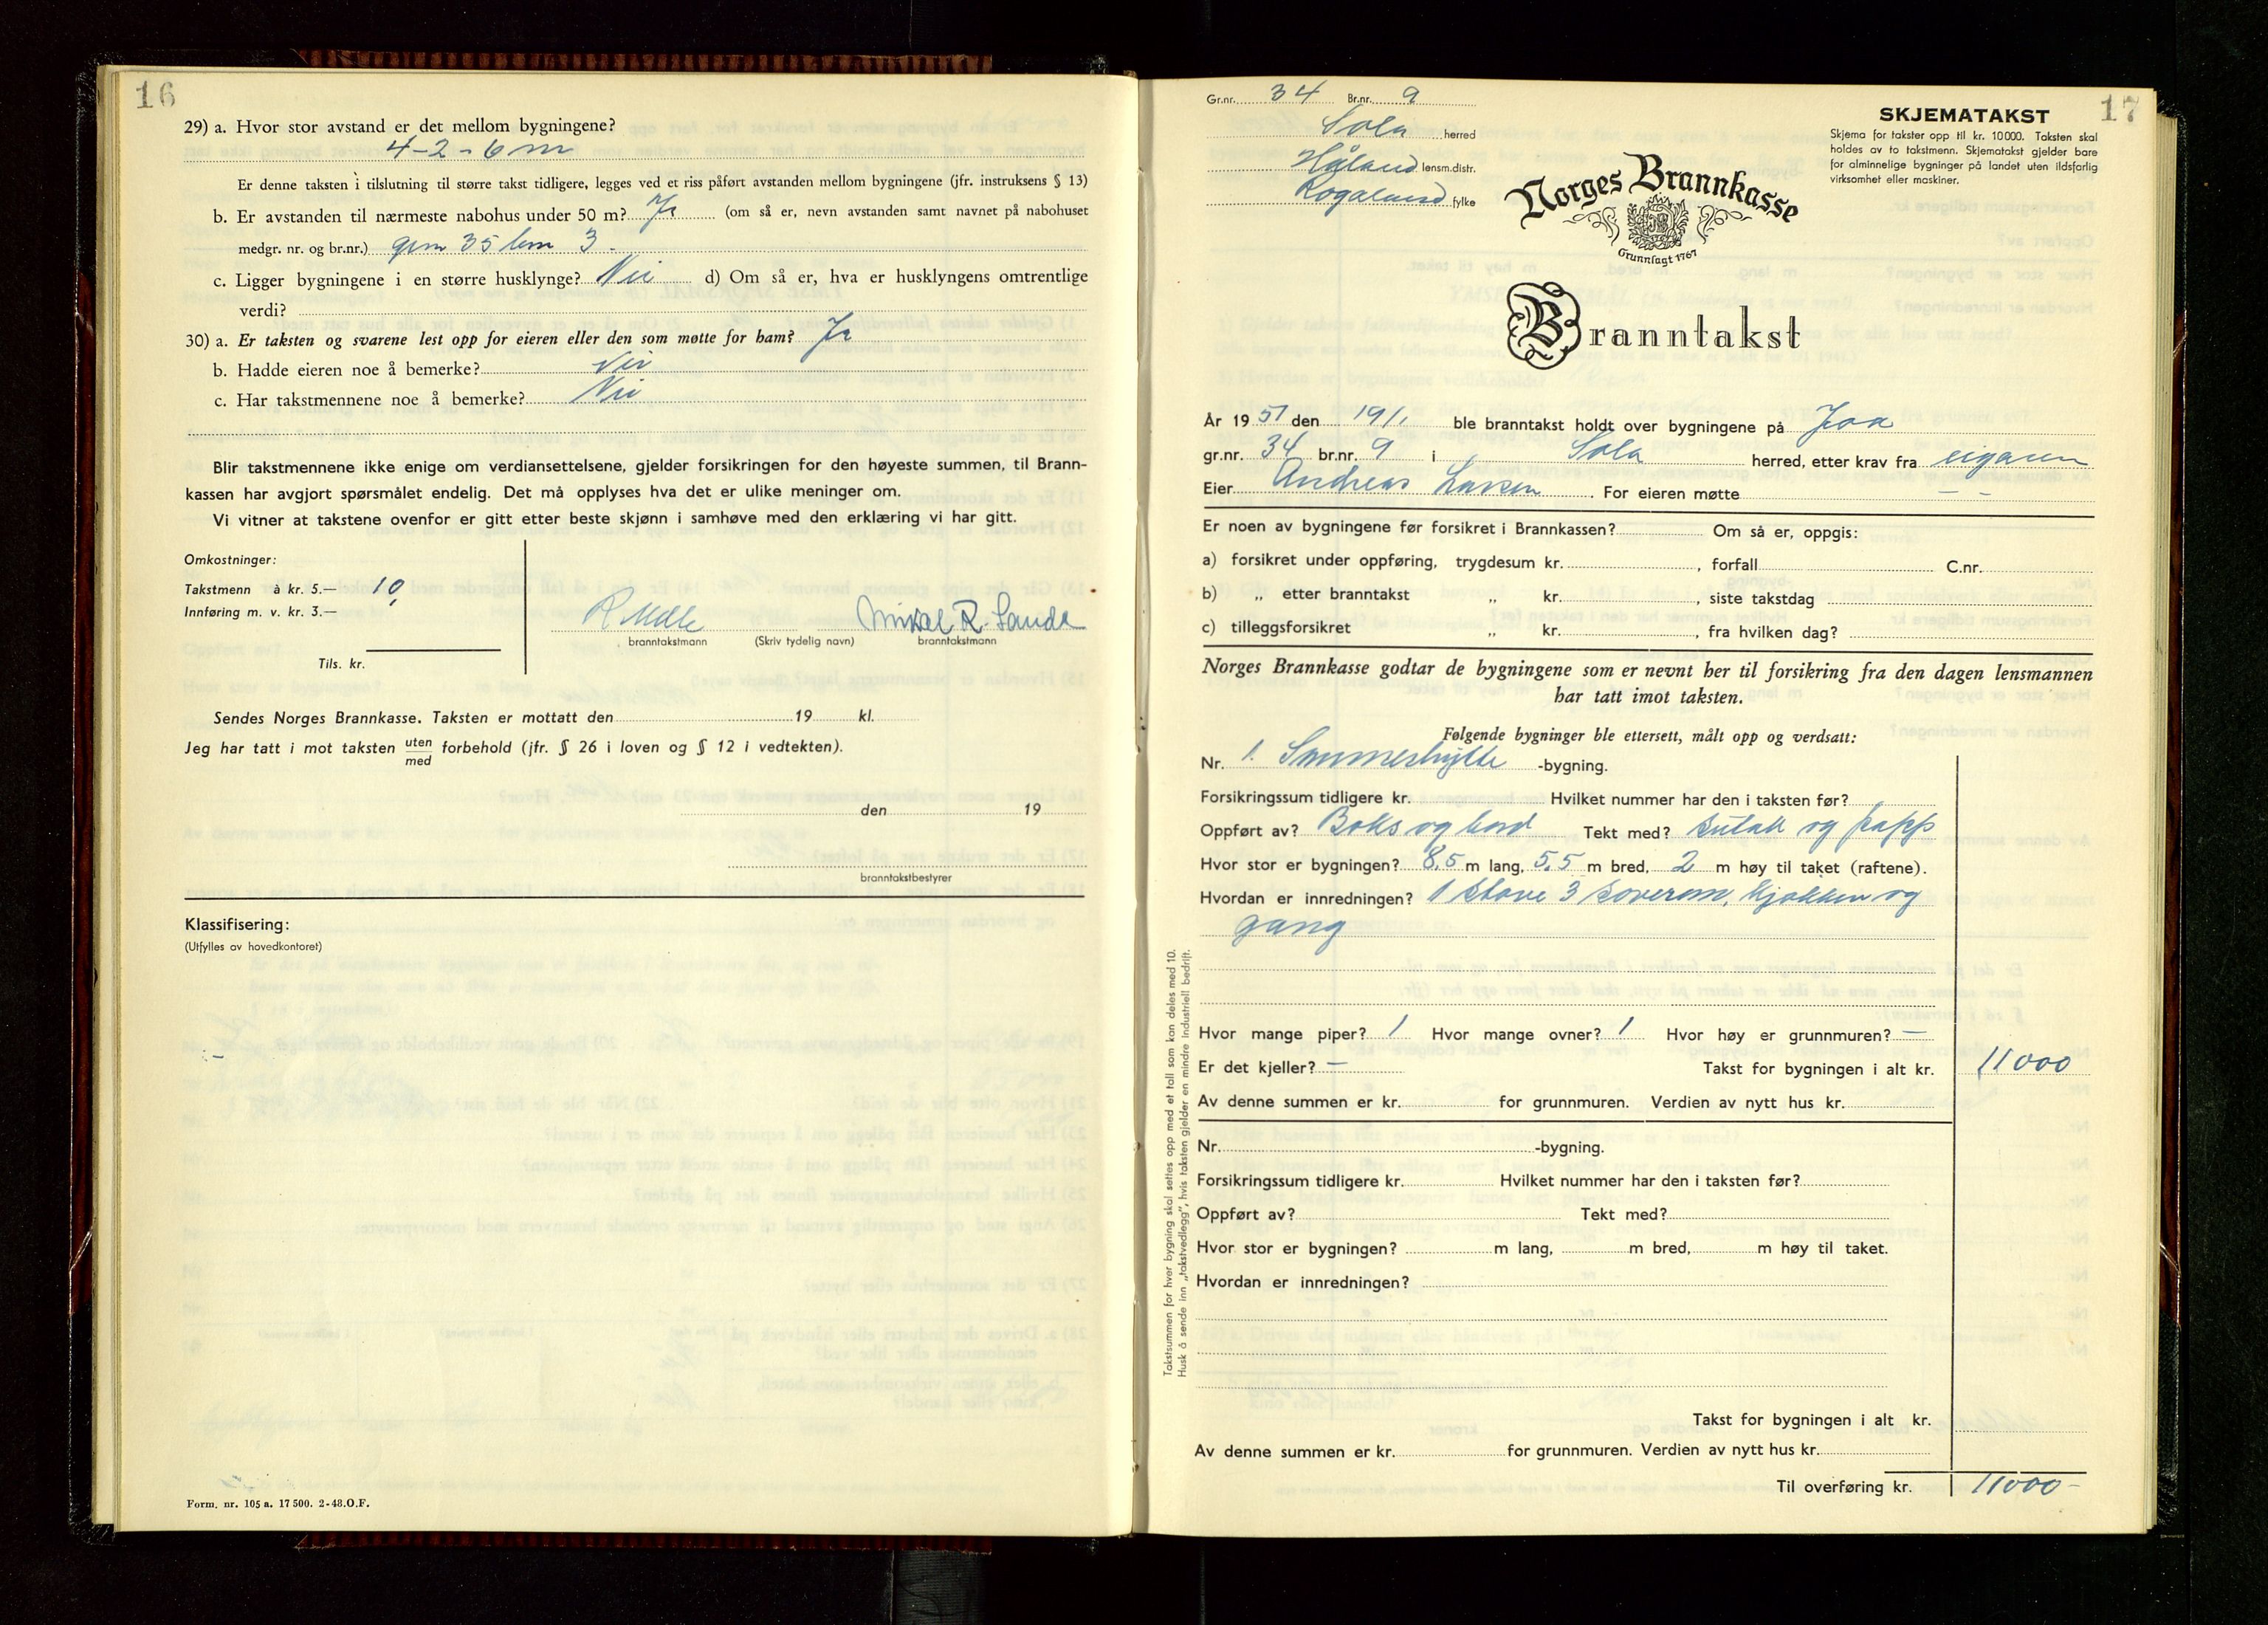 16
29) a. Hvor stor avstand er det mellom bygningene?
4-2-6 m
Er denne taksten i tilslutning til større takst tidligere, legges ved et riss påført avstanden mellom bygningene (jfr. instruksens § 13)
b. Er avstanden til nærmeste nabohus under 50 m? Ja (om så er, nevn avstanden samt navnet på nabohuset
medgr. nr. og br.nr.) gnr 35 bnr 3.
c. Ligger bygningene i en større husklynge? Nei d) Om så er, hva er husklyngens omtrentlige
verdi?
30) a. Er taksten og svarene lest opp for eieren eller den som møtte for ham? Ja
b. Hadde eieren noe å bemerke? Nei
c. Har takstmennene noe å bemerke? Nei
Blir takstmennene ikke enige om verdiansettelsene, gjelder forsikringen for den høyeste summen, til Brann-
kassen har avgjort spørsmålet endelig. Det må opplyses hva det er ulike meninger om.
Vi vitner at takstene ovenfor er gitt etter beste skjønn i samhøve med den erklæring vi har gitt.
Omkostninger:
Takstmenn à kr. 5.— 10,
Innføring m. v. kr. 3.—
Tils. kr.
Mikal R. Sande
branntakstmann (Skriv tydelig navn) branntakstmann
Sendes Norges Brannkasse. Taksten er mottatt den 19 kl.
Jeg har tatt i mot taksten uten
med forbehold (jfr. § 26 i loven og § 12 i vedtekten).
den 19
branntakstbestyrer
Klassifisering:
(Utfylles av hovedkontoret)
Form. nr. 105 a. 17 500. 2-48.O.F.
17
Gr.nr. 34 Br.nr. 9
Sola herred
Håland lensm.distr.
Rogaland fylke
SKJEMATAKST
Skjema for takster opp til kr. 10 000. Taksten skal
holdes av to takstmenn. Skjematakst gjelder bare
for alminnelige bygninger på landet uten ildsfarlig
virksomhet eller maskiner.
Norges Brannkasse
Grunnlagt 1767
Branntakst
År 1951 den 19/1 ble branntakst holdt over bygningene på Joa
gr.nr. 34 br.nr. 9 i Sola herred, etter krav fra eigaren
Eier Andreas Larsen For eieren møtte — —
Er noen av bygningene før forsikret i Brannkassen? Om så er, oppgis:
a) forsikret under oppføring, trygdesum kr. , forfall C.nr.
b) „ etter branntakst „ kr. , siste takstdag
c) tilleggsforsikret „ kr. , fra hvilken dag?
Norges Brannkasse godtar de bygningene som er nevnt her til forsikring fra den dagen lensmannen
har tatt imot taksten.
Følgende bygninger ble ettersett, målt opp og verdsatt:
Nr. 1. Sommerhytte -bygning.
Forsikringssum tidligere kr. Hvilket nummer har den i taksten før?
Oppført av? Boks og bord Tekt med? sutak og papp
Hvor stor er bygningen? 8,5 m lang, 5,5 m bred, 2 m høy til taket (raftene).
Hvordan er innredningen? 1 stove 3 soverom, kjøkken og
gang
Hvor mange piper? 1 Hvor mange ovner? 1 Hvor høy er grunnmuren? —
Er det kjeller? — Takst for bygningen i alt kr. 11000
Av denne summen er kr. for grunnmuren. Verdien av nytt hus kr.
Nr. -bygning.
Forsikringssum tidligere kr. Hvilket nummer har den i taksten før?
Oppført av? Tekt med?
Hvor stor er bygningen? m lang, m bred, m høy til taket.
Hvordan er innredningen?
Takst for bygningen i alt kr.
Av denne summen er kr. for grunnmuren. Verdien av nytt hus kr.
Til overføring kr. 11000-
Takstsummen for hver bygning skal settes opp med et tall som kan deles med 10.
Husk å sende inn „takstvedlegg“, hvis taksten gjelder en mindre industriell bedrift.